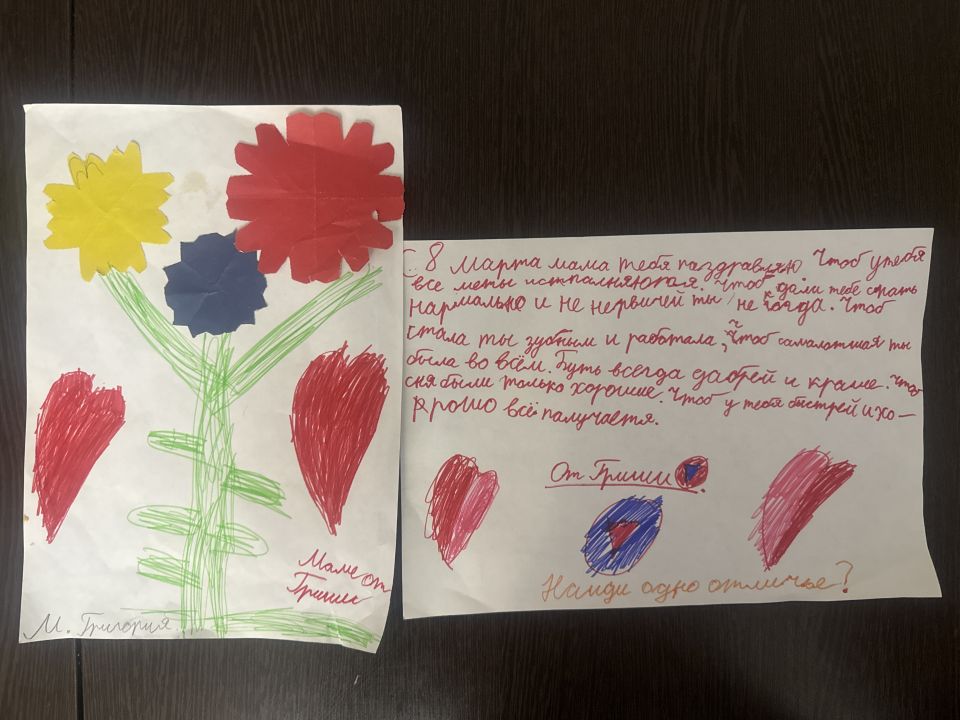 Маме от
Гриши
М. Григория
С 8 Марта мама тебя паздравляю. Чтоб у тебя
все меты истпалняюгся. Чтоб дали тебе спать
нармалько и не нервичей ты не когда. Чтоб
стала ты зубным и работала, Чтоб самалотшая ты
была во всём. Буть всегда дабрей и краше. Что
сня были только хорошие. Чтоб у тебя быстрей и хо-
рошо всё палучается.
От Гриши.
Найди одно отличье?